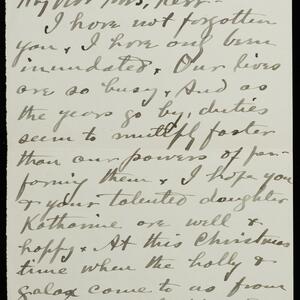 My dear Mrs, Kerr--
I have not forgotten
you & I have only been
inundated. Our lives
are so busy & And as
the years go by, duties
seem to multiply faster
than our powers of per-
forming them & I hope you
& your talented daughter
Katharine are well &
happy & At this Christmas
time when the holly &
galax come to us from